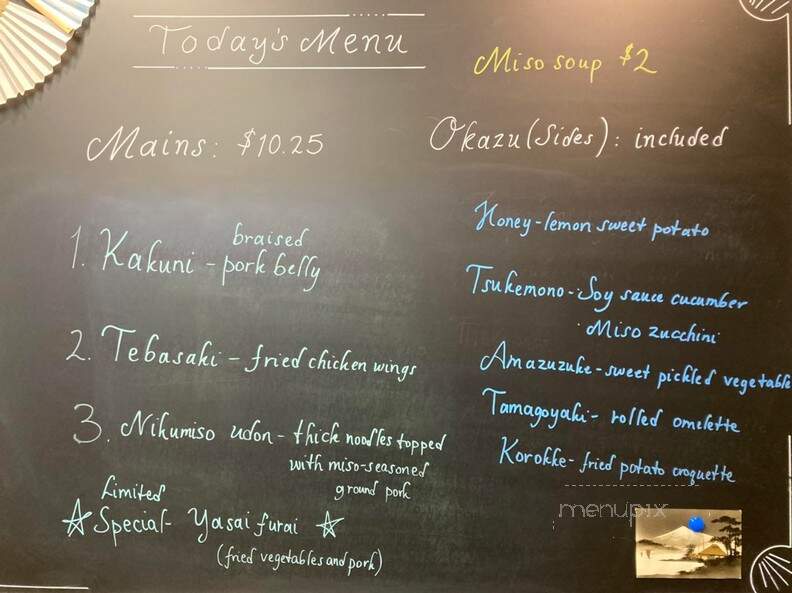 Today's Menu
Miso soup $2
Mains: $10.25
1. Kakuni - braised pork belly
2. Tebasaki - fried chicken wings
3. Nikumiso udon - thick noodles topped
with miso-seasoned
ground pork
Limited
☆ Special - Yasai furai ☆
(fried vegetables and pork)
Okazu (Sides): included
Honey-lemon sweet potato
Tsukemono - Soy sauce cucumber
Miso zucchini
Amazuzuke - sweet pickled vegetable
Tamagoyaki - rolled omelette
Korokke - fried potato croquette
menupix